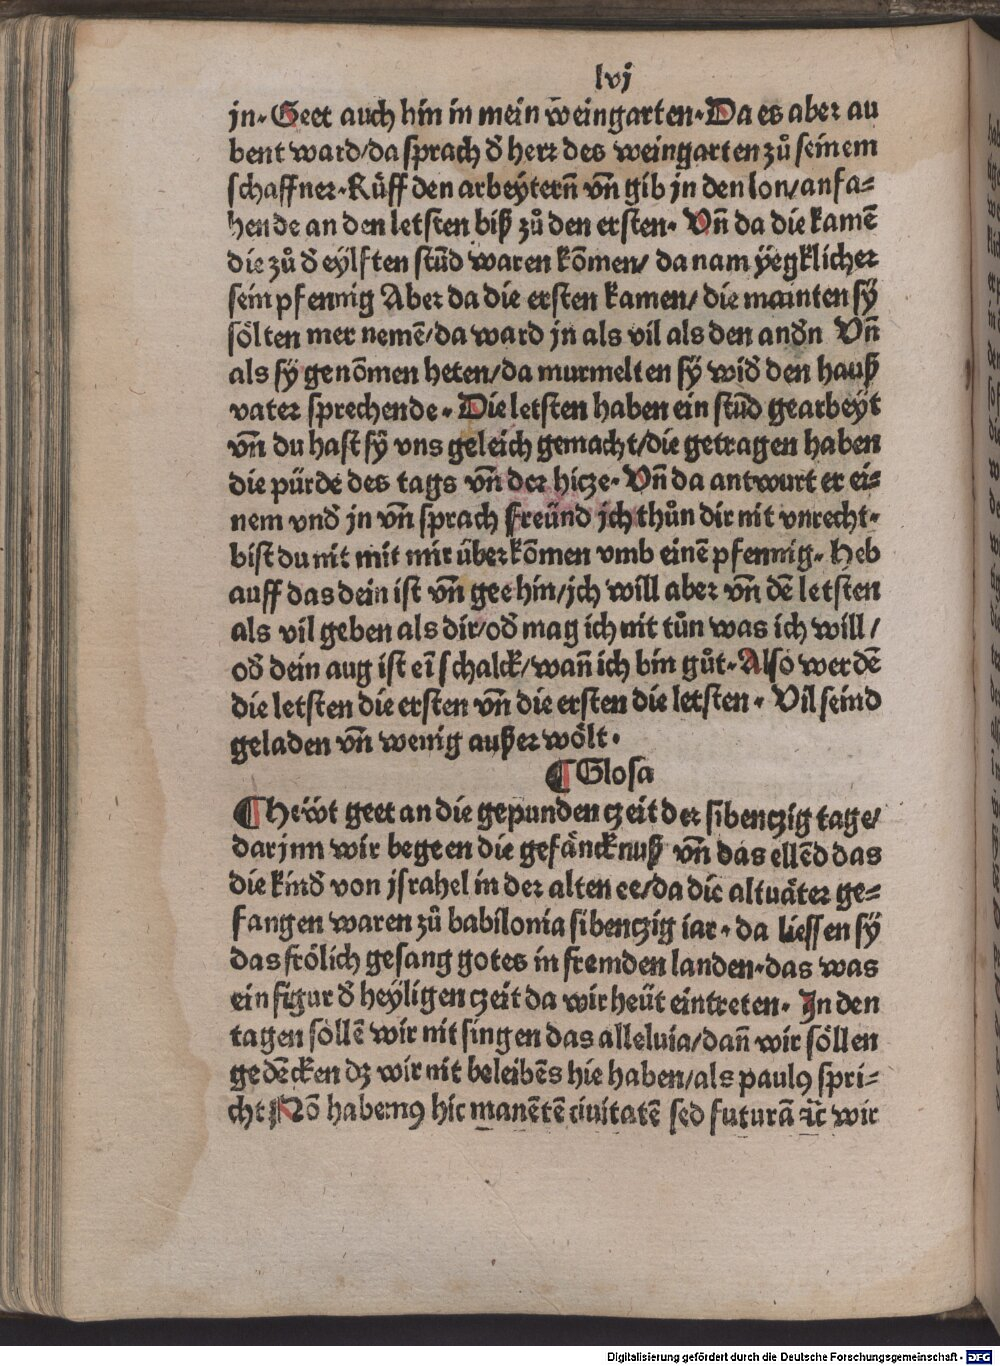 lvj
jn. Geet auch hin in mein weingarten. Da es aber au
bent ward/da sprach d̄ herr des weingarten zů seinem
schaffner. Růff den arbeyterñ vñ gib jn den lon/anfa=
hende an den letsten biß zů den ersten. Vñ da die kamē
die zů d̄ eylften stūd waren kōmen/ da nam ÿegklicher
sein pfennig Aber da die ersten kamen/ die mainten sÿ
sölten mer nemē/da ward jn als vil als den and̄n Vñ
als sÿ genōmen heten/da murmelten sÿ wid̄ den hauß
vater sprechende. Die letsten haben ein stūd gearbeyt
vñ du hast sÿ vns geleich gemacht/die getragen haben
die pürde des tags vñ der hicze. Vñ da antwurt er ei=
nem vnd̄ jn vñ sprach freünd jch thůn dir nit vnrecht.
bist du nit mit mir überkōmen vmb einē pfennig. Heb
auff das dein ist vñ gee hin/jch will aber vñ dē letsten
als vil geben als dir/od̄ mag ich nit tůn was ich will/
od̄ dein aug ist eī schalck/wañ ich bin gůt. Also werdē
die letsten die ersten vñ die ersten die letsten. Vil seind
geladen vñ wenig außerwölt.
¶ Glosa
¶ Hewt geet an die gepunden czeit der sibenczig tage/
darjnn wir begeen die gefäncknuß vñ das ellēd das
die kind̄ von jsrahel in der alten ee/da die altuäter ge=
fangen waren zů babilonia sibenczig iar. da liessen sÿ
das frölich gesang gotes in fremden landen. das was
ein figur d̄ heÿligen czeit da wir heüt eintreten. In den
tagen söllē wir nit singen das alleluia/dañ wir söllen
gedēcken dz wir nit beleibēs hie haben/als paulꝰ spri=
cht Nō habemꝰ hic manētē ciuitatē sed futurā ⁊c̄ wir
Digitalisierung gefördert durch die Deutsche Forschungsgemeinschaft - DFG